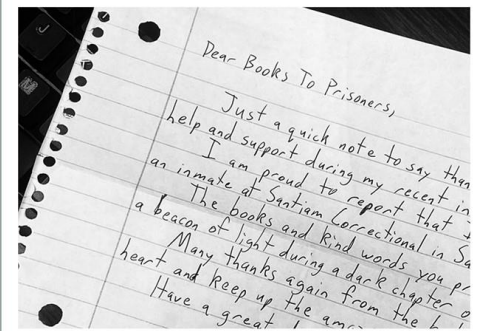 Dear Books To Prisoners,
Just a quick note to say than
help and support during my recent in
I am proud to report that
an inmate at Santiam Correctional in Sa
The books and kind words you pr
a beacon of light during a dark chapter o
Many thanks again from the
heart and keep up the ama
Have a great